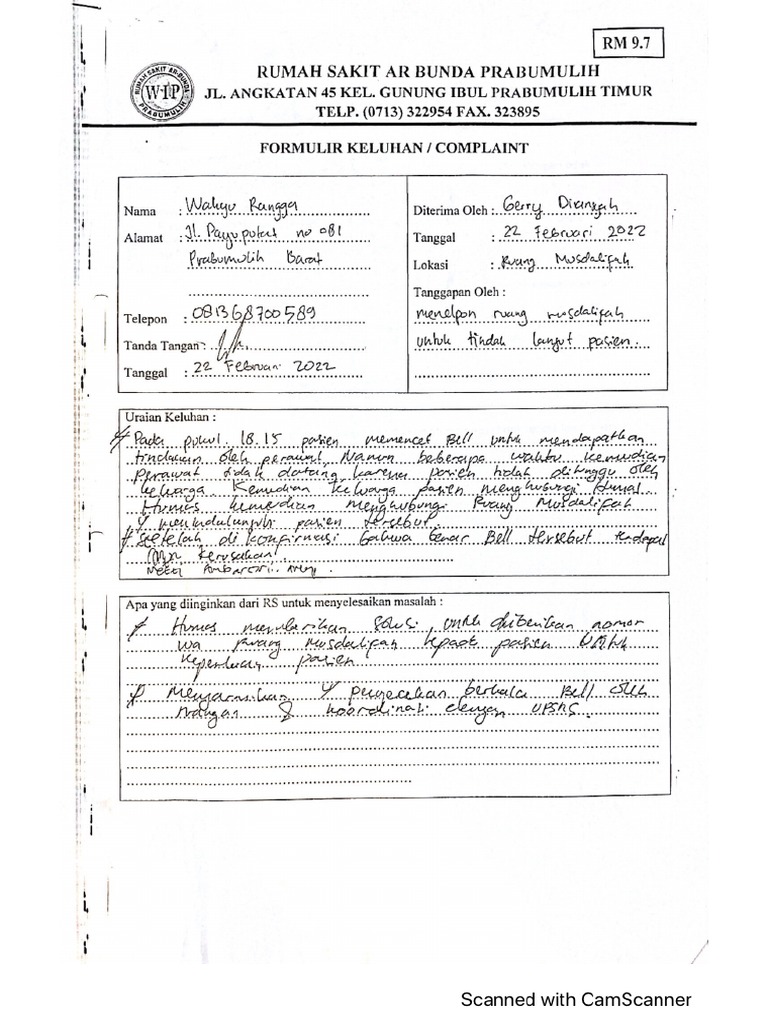 RM 9.7
RUMAH SAKIT AR BUNDA PRABUMULIH
JL. ANGKATAN 45 KEL. GUNUNG IBUL PRABUMULIH TIMUR
TELP. (0713) 322954 FAX. 323895
RUMAH SAKIT AR-BUNDA
WIP
PRABUMULIH
FORMULIR KELUHAN / COMPLAINT
Nama : Wahyu Rangga
Alamat : Jl. Payuputat no 081
Prabumulih Barat
Telepon : 081368700589
Tanda Tangan :
Tanggal : 22 Februari 2022
Diterima Oleh : Gerry Diansyah
Tanggal : 22 Februari 2022
Lokasi : Ruang Musdalifah
Tanggapan Oleh :
menelpon ruang musdalifah
untuk tindak lanjut pasien.
Uraian Keluhan :
Pada pukul 18.15 pasien memencet Bell untuk mendapatkan
tindakan oleh perawat. Namun beberapa waktu kemudian
perawat tidak datang karena pasien tidak ditunggu oleh
keluarga. Kemudian keluarga pasien menghubungi Humas.
Humas kemudian menghubungi Ruang Musdalifah
pasien tersebut.
Setelah di konfirmasi bahwa benar Bell tersebut terdapat
kerusakan.
Apa yang diinginkan dari RS untuk menyelesaikan masalah :
Humas memberikan solusi, untuk diberikan nomor
wa Ruang Musdalifah kepada pasien untuk
keperluan pasien
Menyarankan pengecekan berkala Bell oleh
ruangan & koordinasi dengan UPSRS.
Scanned with CamScanner